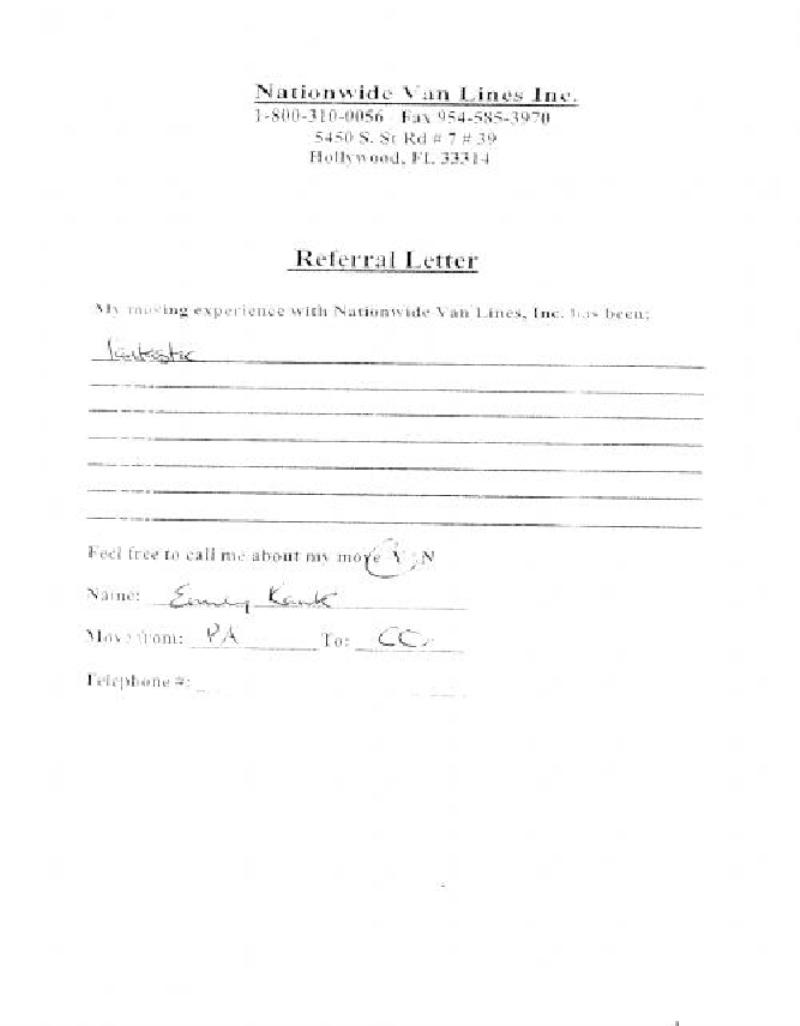 Nationwide Van Lines Inc.
1-800-310-0056 Fax 954-585-3970
5450 S. St Rd # 7 # 39
Hollywood, FL 33314
Referral Letter
My moving experience with Nationwide Van Lines, Inc. has been:
fantastic
Feel free to call me about my move Y N
Name:
Move from: PA To:
Telephone #: